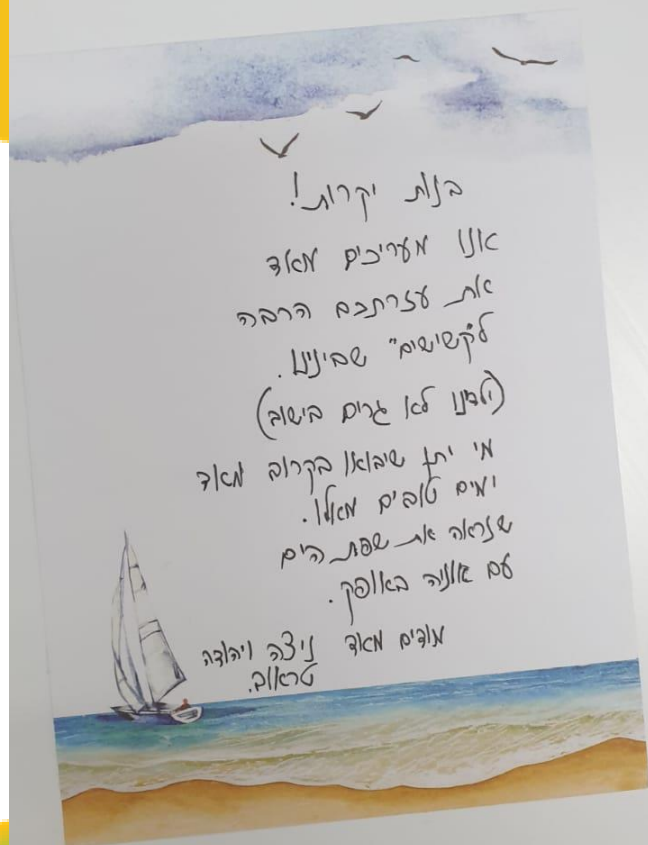 בנות יקרות!
אנו מעריכים מאד
את עזרתכם הרבה
ל"קשישים" שבינינו.
(ילדינו לא גרים בישוב)
מי יתן שיבואו בקרוב מאד
ימים טובים מאלו.
שנראה את שפת הים
עם אוניה באופק.
מודים מאד ניצה ויהודה
טראוב.